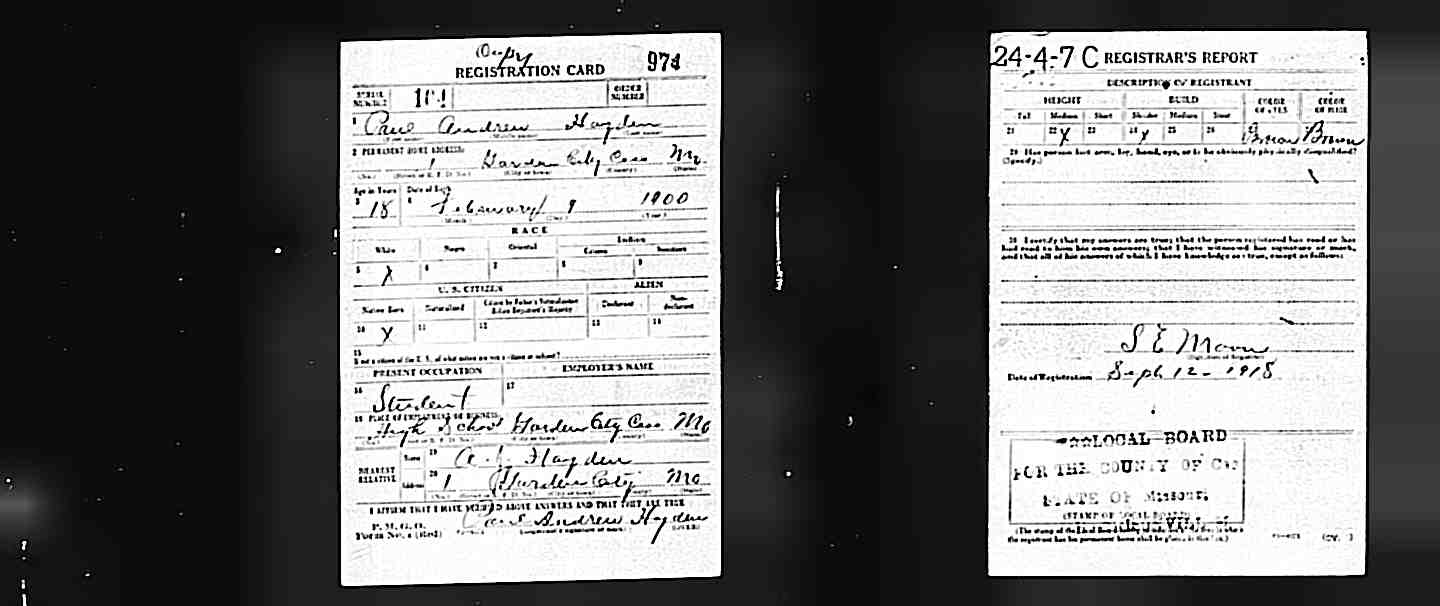 Copy
REGISTRATION CARD
974
SERIAL NUMBER
ORDER NUMBER
1 Paul Andrew Hayden
2 PERMANENT HOME ADDRESS:
1 Garden City Cass Mo.
(No.) (Street or R. F. D. No.) (City or town) (County) (State)
Age in Years Date of Birth
3 18 4 February 9 1900
(Month) (Day) (Year)
RACE
White Negro Oriental Indian
Citizen Noncitizen
5 X 6 7 8 9
U. S. CITIZEN ALIEN
Native Born Naturalized Citizen by Father's Naturalization Before Registrant's Majority Declarant Non-declarant
10 X 11 12 13 14
15
If not a citizen of the U. S., of what nation are you a citizen or subject?
PRESENT OCCUPATION EMPLOYER'S NAME
16 Student 17
18 PLACE OF EMPLOYMENT OR BUSINESS:
High School Garden City Cass Mo
(No.) (Street or R. F. D. No.) (City or town) (County) (State)
NEAREST RELATIVE
Name 19 A. J. Hayden
Address 20 1 Garden City Mo
(No.) (Street or R. F. D. No.) (City or town) (County) (State)
I AFFIRM THAT I HAVE VERIFIED ABOVE ANSWERS AND THAT THEY ARE TRUE
P. M. G. O.
Form No. 1 (Red) Paul Andrew Hayden
(Registrant's signature or mark) (OVER)
24-4-7 C REGISTRAR'S REPORT
DESCRIPTION OF REGISTRANT
HEIGHT BUILD COLOR OF EYES COLOR OF HAIR
Tall Medium Short Slender Medium Stout
21 22 X 23 24 X 25 26 Brown Brown
29 Has person lost arm, leg, hand, eye, or is he obviously physically disqualified?
(Specify.)
30 I certify that my answers are true; that the person registered has read or has
had read to him his own answers; that I have witnessed his signature or mark,
and that all of his answers of which I have knowledge are true, except as follows:
S E Moore
(Signature of Registrar)
Date of Registration Sept 12 - 1918
LOCAL BOARD
FOR THE COUNTY OF Cass
STATE OF Missouri
(STAMP OF LOCAL BOARD)
(The stamp of the Local Board
the registrant has his permanent home shall be placed in this box.)
(OVER)